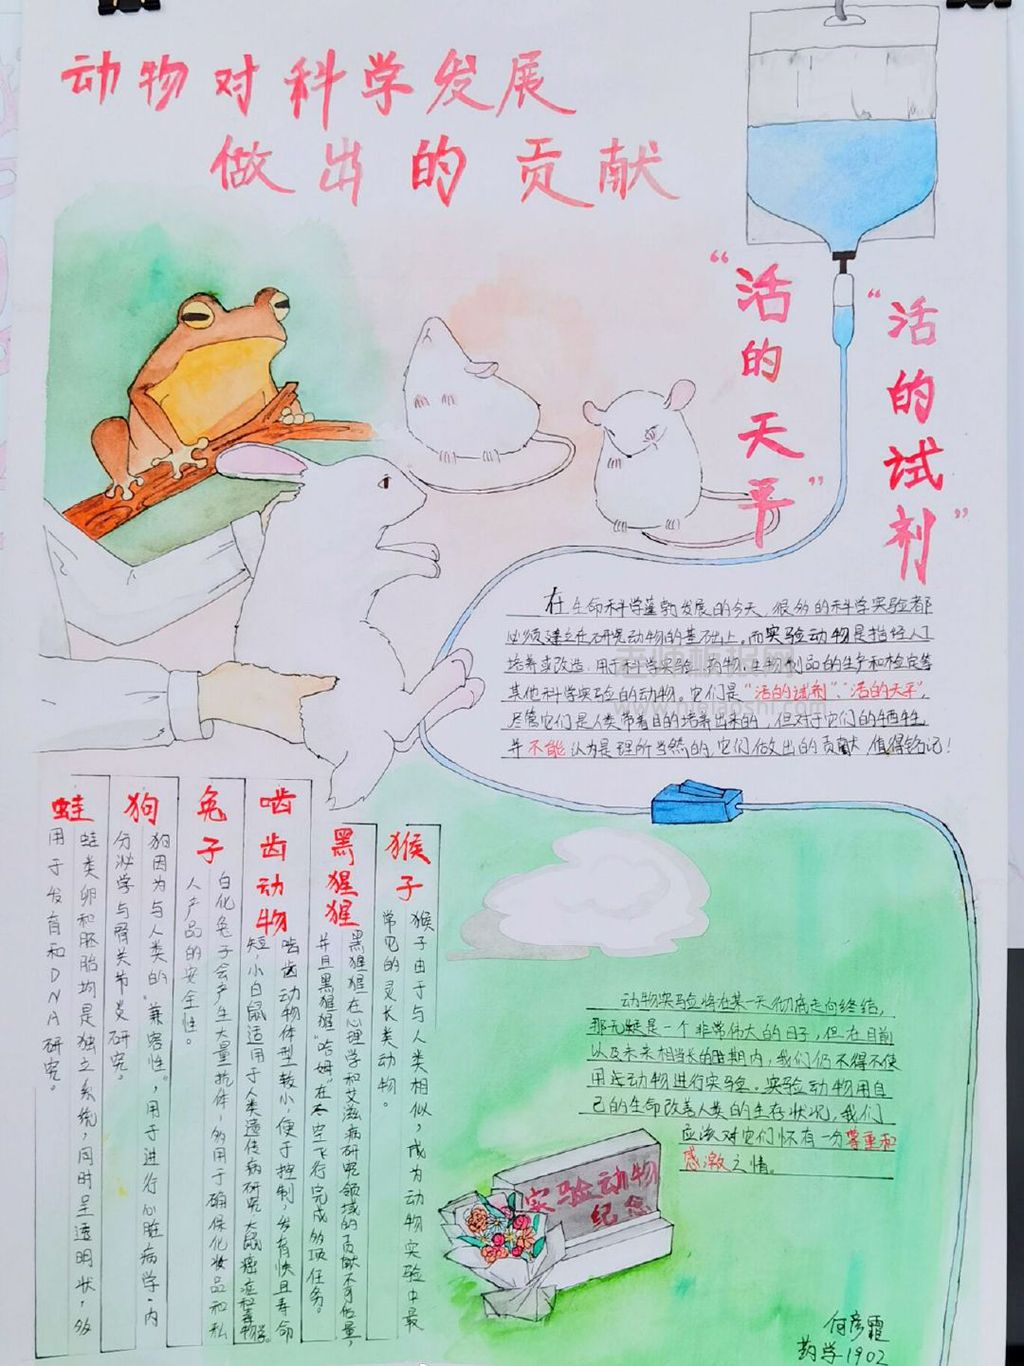 动物对科学发展
做出的贡献
“活的天平”
“活的试剂”
在生命科学蓬勃发展的今天，很多的科学实验都
必须建立在研究动物的基础上。而实验动物是指经人工
培养或改造，用于科学实验、药物、生物制品的生产和检定等
其他科学实验的动物。它们是“活的试剂”、“活的天平”，
尽管它们是人类带着目的培养出来的，但对于它们的牺牲
并不能认为是理所当然的，它们做出的贡献 值得铭记！
猴子
猴子由于与人类相似，成为动物实验中最
常见的灵长类动物。
黑猩猩
黑猩猩在心理学和艾滋病研究领域的贡献不可估量，
并且黑猩猩“哈姆”在太空飞行完成多项任务。
啮齿动物
啮齿动物体型较小，便于控制，发育快且寿命
短，小白鼠适用于人类遗传病研究，大鼠癌症和毒物学。
兔子
白化兔子会产生大量抗体，多用于确保化妆品和私
人产品的安全性。
狗
狗因为与人类的“兼容性”，用于进行心脏病学、内
分泌学与骨关节炎研究。
蛙
蛙类卵和胚胎均是独立系统，同时呈透明状，多
用于发育和DNA研究。
动物实验将在某一天彻底走向终结，
那无疑是一个非常伟大的日子，但在目前
以及未来相当长的时期内，我们仍不得不使
用些动物进行实验。实验动物用自
己的生命改善人类的生存状况，我们
应该对它们怀有一分尊重和
感激之情。
实验动物
纪念
何彦霜
药学1902
老师板报网
www.nielaoshi.com